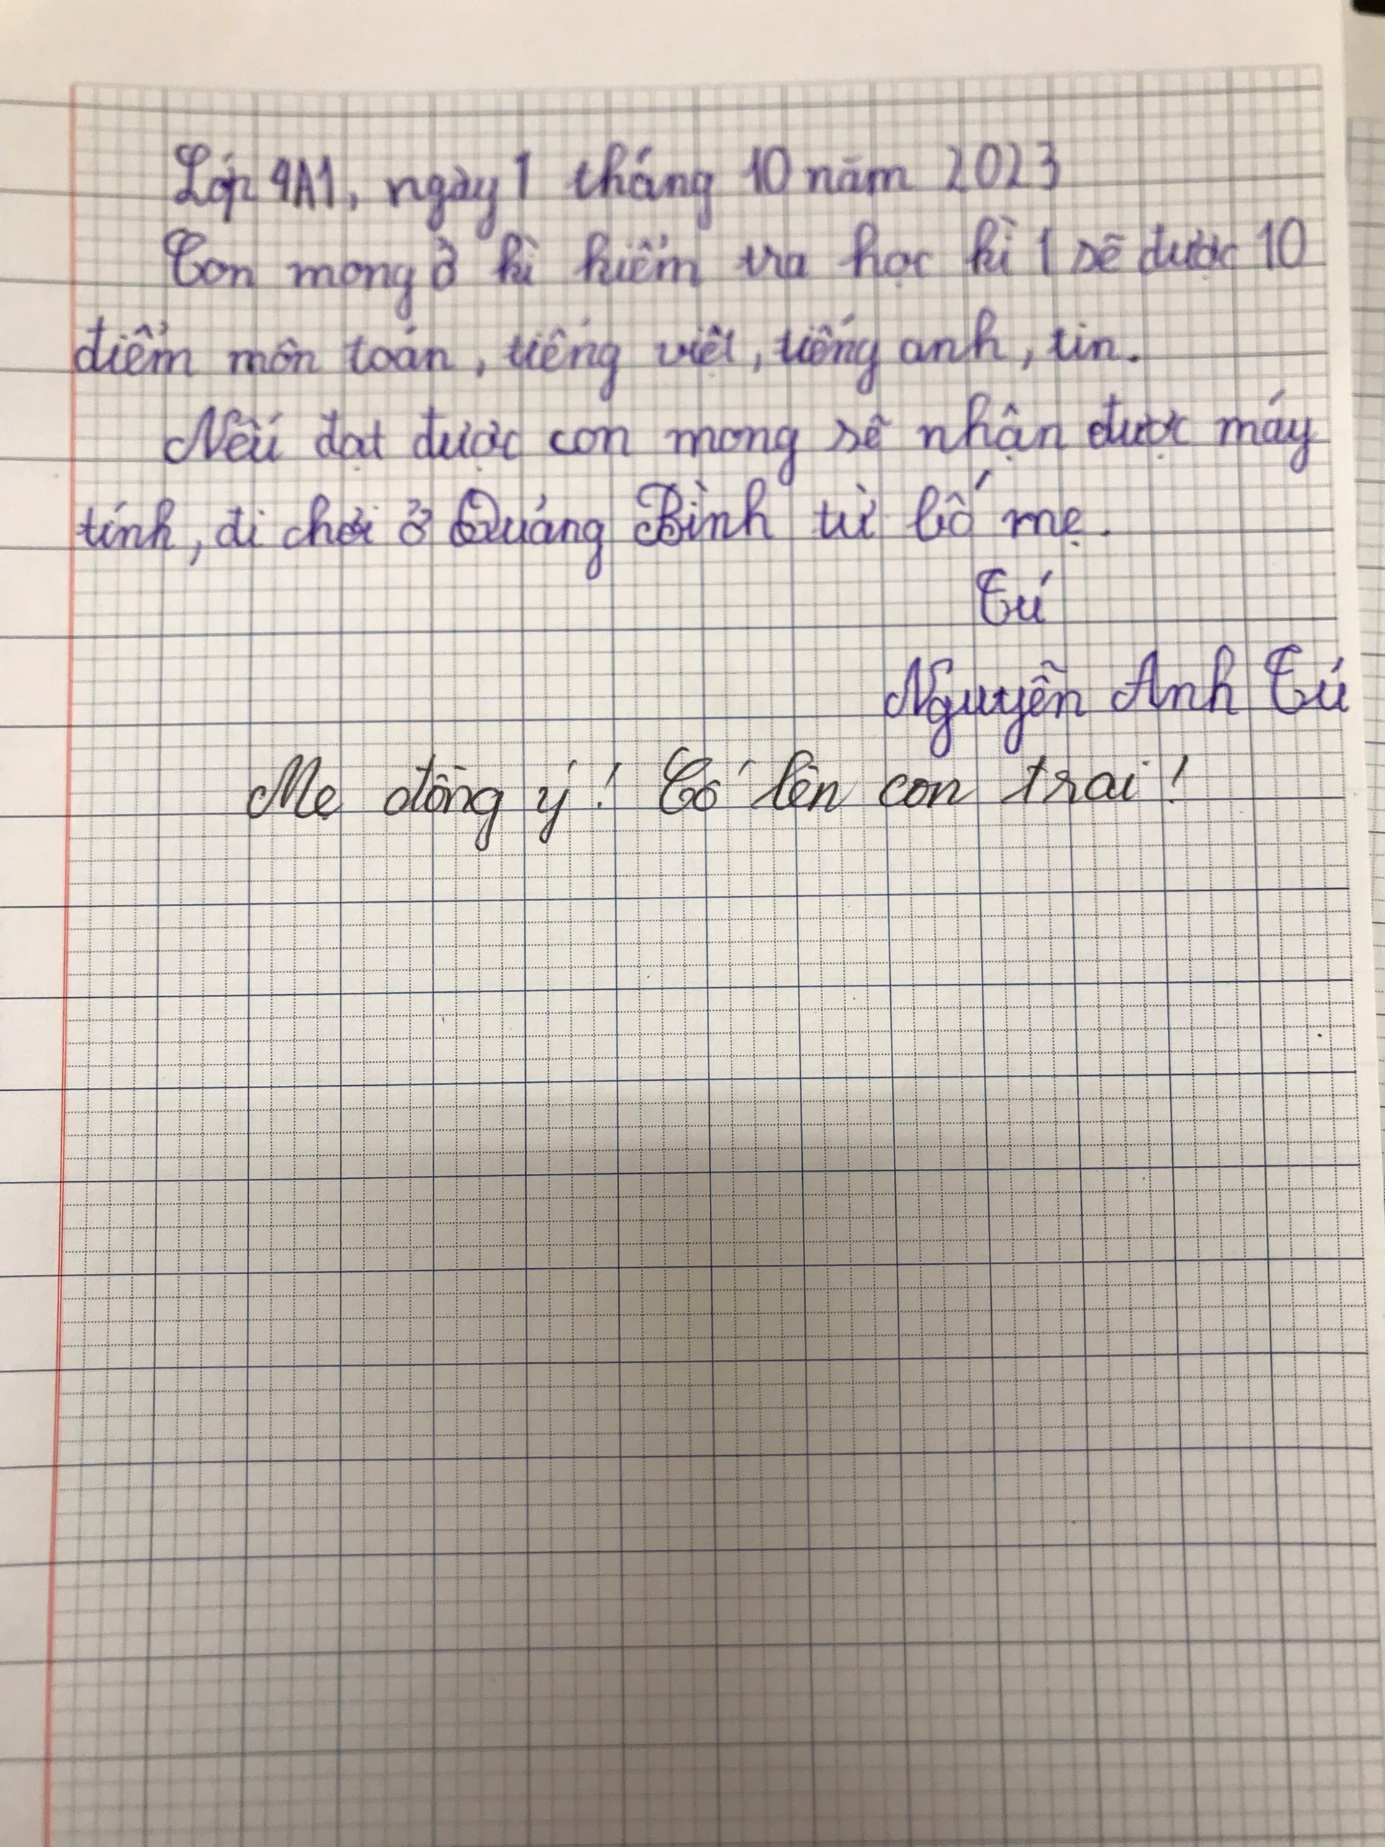 Lớp 4A1, ngày 1 tháng 10 năm 2023
Con mong ở kì kiểm tra học kì 1 sẽ được 10
điểm môn toán, tiếng việt, tiếng anh, tin.
Nếu đạt được con mong sẽ nhận được máy
tính, đi chơi ở Quảng Bình từ bố mẹ.
Tú
Nguyễn Anh Tú
Mẹ đồng ý! Cố lên con trai!